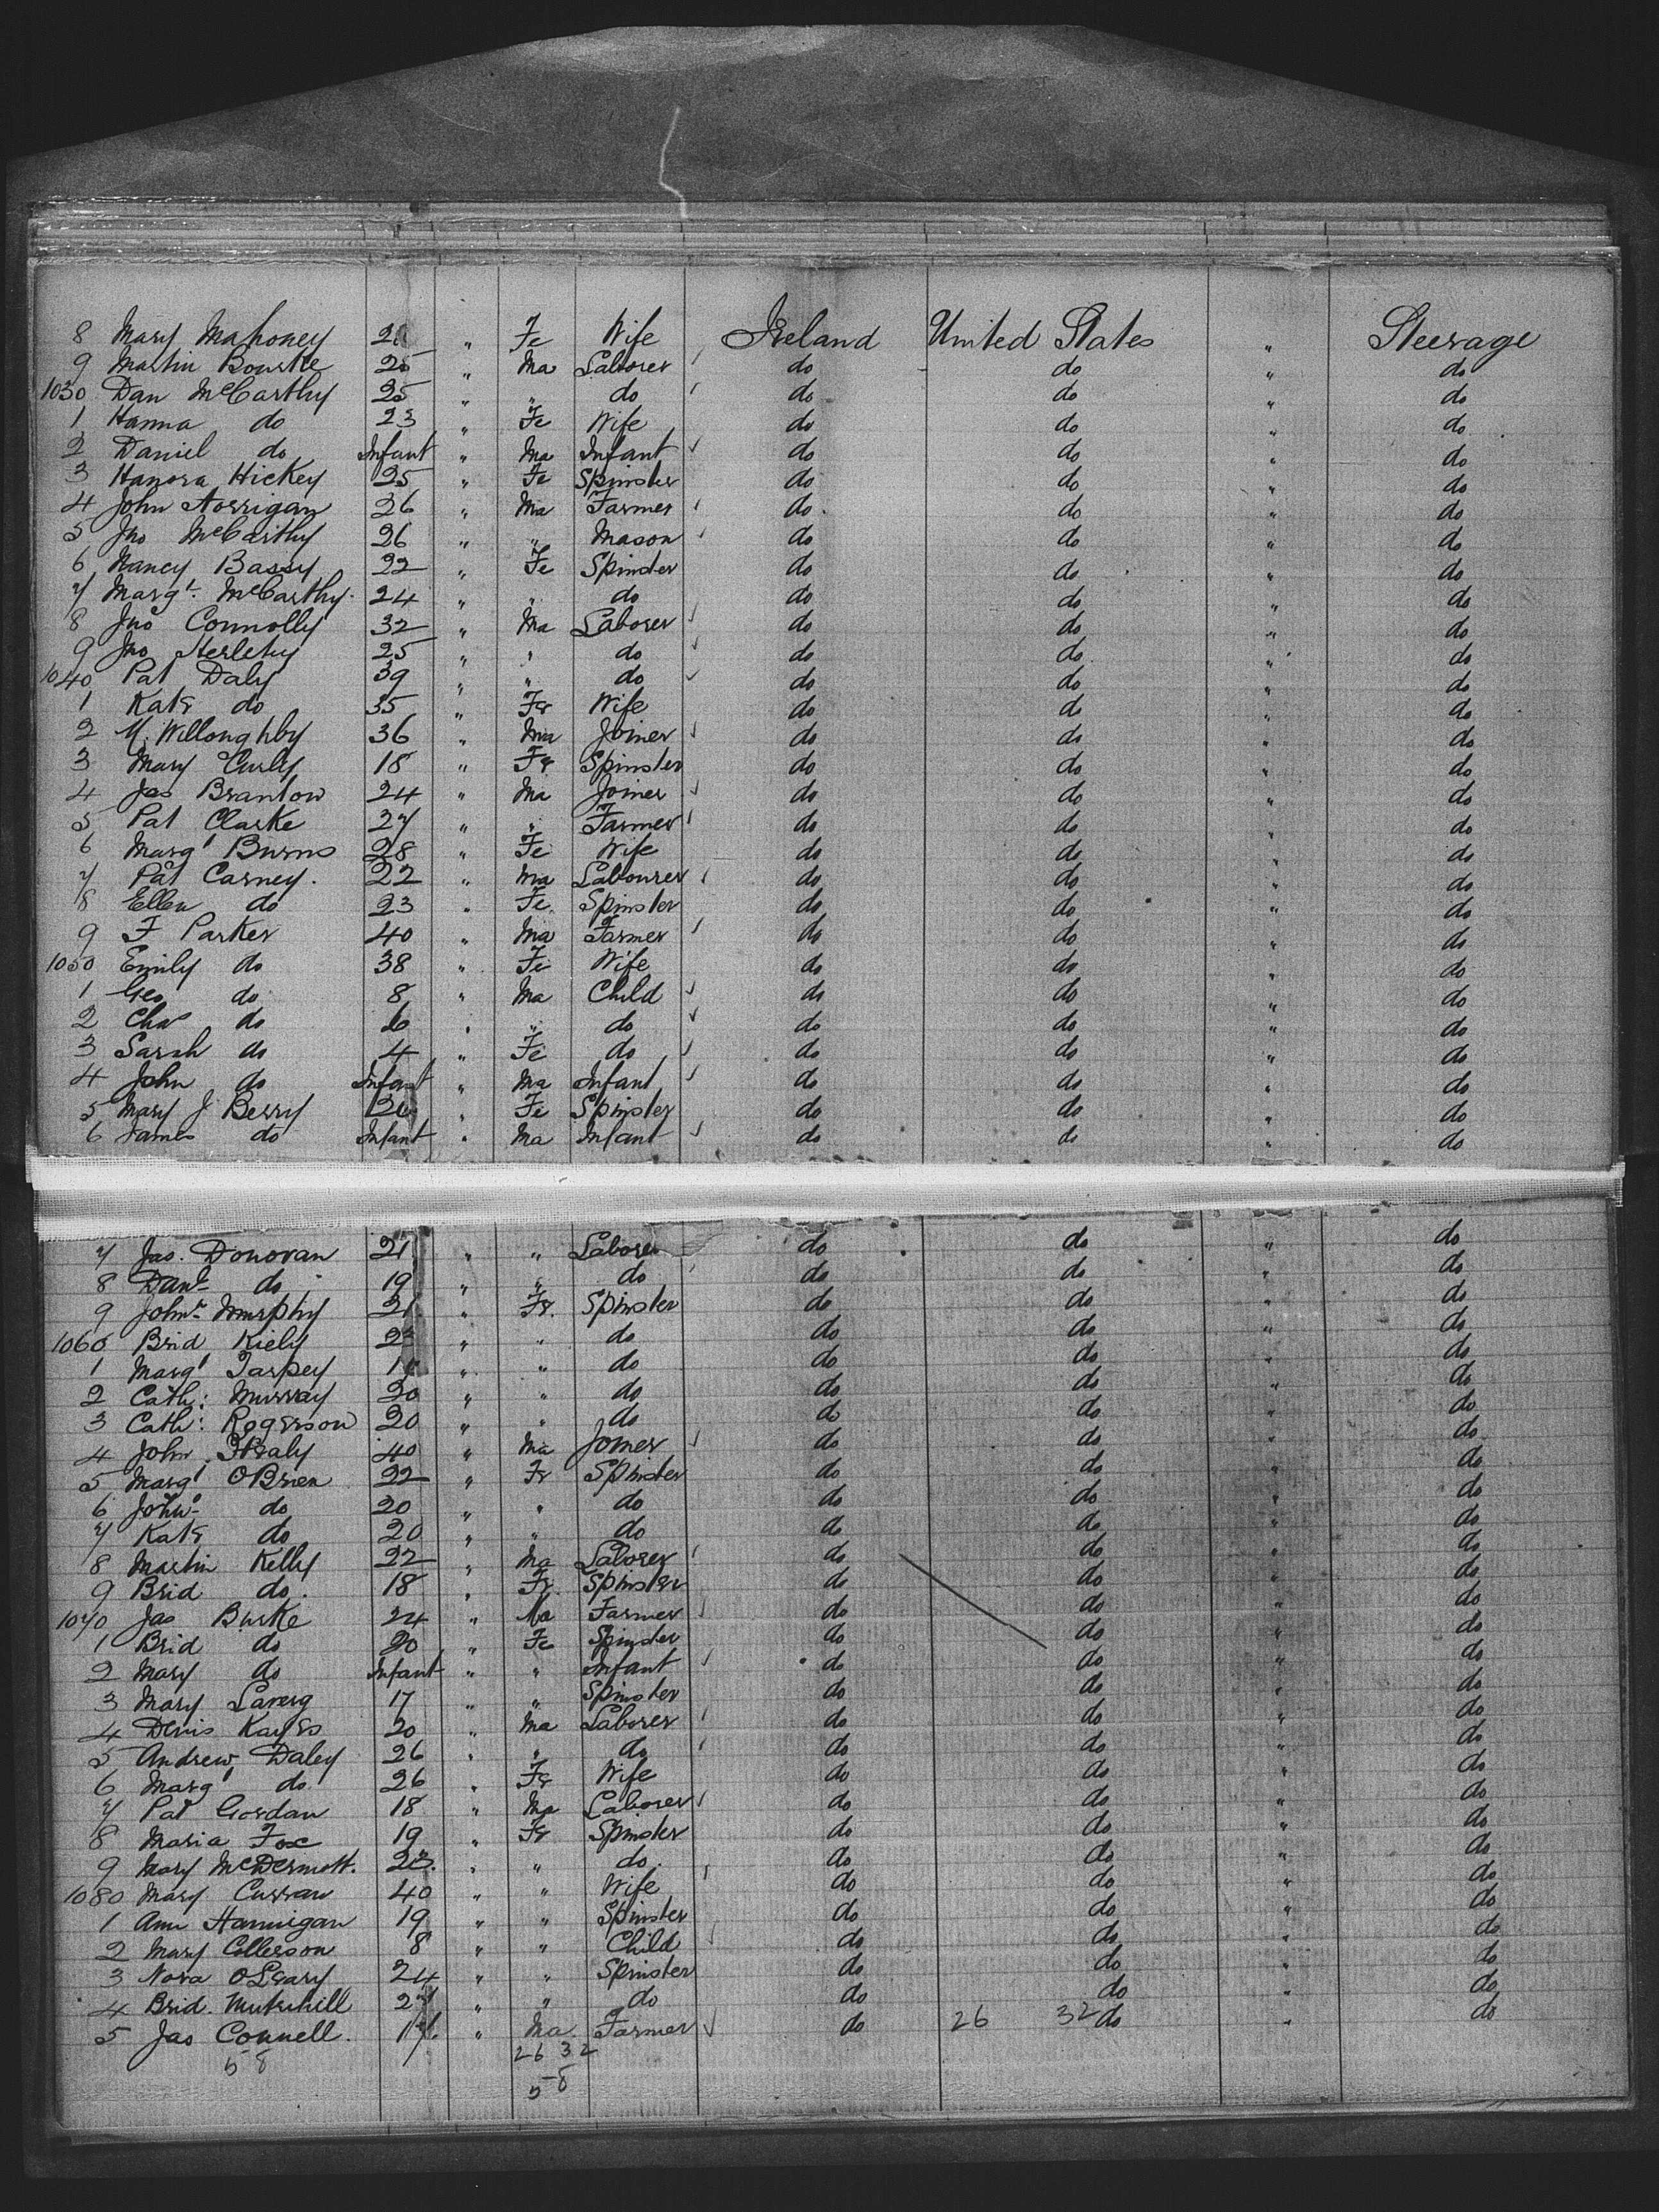 8 Mary Mahoney 2 " Fe Wife Ireland United States " Steerage
9 Martin Bourke 25 " Ma Laborer do do " do
1030 Dan McCarthy 25 " " do do do " do
1 Hanna do 23 " Fe Wife do do " do
2 Daniel do Infant " Ma Infant do do " do
3 Hanora Hickey 25 " Fe Spinster do do " do
4 John 26 " Ma Farmer do do " do
5 Jno McCarthy 26 " " Mason do do " do
6 Nancy Bassy 22 " Fe Spinster do do " do
7 Margt. McCarthy 24 " " do do do " do
8 Jno Connolly 32 " Ma Laborer do do " do
9 Jno Herlehy 25 " " do do do " do
1040 Pat Daly 39 " " do do do " do
1 Kate do 35 " Fe Wife do do " do
2 M. Willoughby 36 " Ma Joiner do do " do
3 Mary Curly 18 " Fe Spinster do do " do
4 Jas Branton 24 " Ma Joiner do do " do
5 Pat Clarke 27 " " Farmer do do " do
6 Margt Burns 28 " Fe Wife do do " do
7 Pat Carney. 22 " Ma Labourer do do " do
8 Ellen do 23 " Fe. Spinster do do " do
9 F Parker 40 " Ma Farmer do do " do
1050 Emily do 38 " Fe Wife do do " do
1 Geo do 8 " Ma Child do do " do
2 Chas do 6 " " do do do " do
3 Sarah do 4 " Fe do do do " do
4 John do Infant " Ma Infant do do " do
5 Mary J Berry " Fe Spinster do do " do
6 James do Infant " Ma Infant do do " do
7 Jas. Donovan 21 " " Laborer do do " do
8 Danl do 19 " " do do do " do
9 Johna Murphy 21 " Fe. Spinster do do " do
1060 Brid Kiely 23 " " do do do " do
1 Margt Tarpey " " do do do " do
2 Cath: Murray 20 " " do do do " do
3 Cath: Rogerson 20 " " do do do " do
4 John Healy 40 " Ma Joiner do do " do
5 Margt OBrien 22 " Fe Spinster do do " do
6 Johna do 20 " " do do do " do
7 Kate do 20 " " do do do " do
8 Martin Kelly 22 " Ma Laborer do do " do
9 Brid do. 18 " Fe. Spinster do do " do
1070 Jas Burke 24 " Ma Farmer do do " do
1 Brid do 20 " Fe Spinster do do " do
2 Mary do Infant " " Infant do do " do
3 Mary Laverg 17 " " Spinster do do " do
4 Denis Kayes 20 " Ma Laborer do do " do
5 Andrew Daley 26 " " do do do " do
6 Margt do 26 " Fe Wife do do " do
7 Pat Gordan 18 " Ma Laborer do do " do
8 Maria Fox 19 " Fe Spinster do do " do
9 Mary McDermott. 23. " " do. do do " do
1080 Mary Curran 40 " " Wife do do " do
1 Ann Hannigan 19 " " Spinster do do " do
2 Mary Collerson 8 " " Child do do " do
3 Nora OLeary 24 " " Spinster do do " do
4 Brid. Mutrihill 2 " " do do do " do
5 Jas Connell. 17 " Ma. Farmer do 26 32 do " do
58 26 32
58